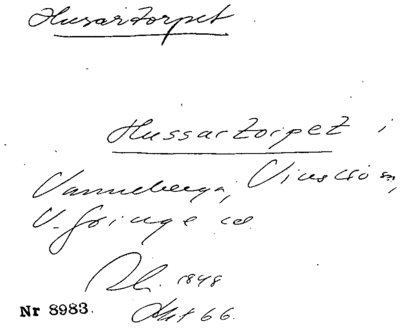 Husartorpet
Hussartorpet i
Vanneberga, Vinslöv sn,
V. Göinge hd.
1848
Nr 8983. Akt 66.